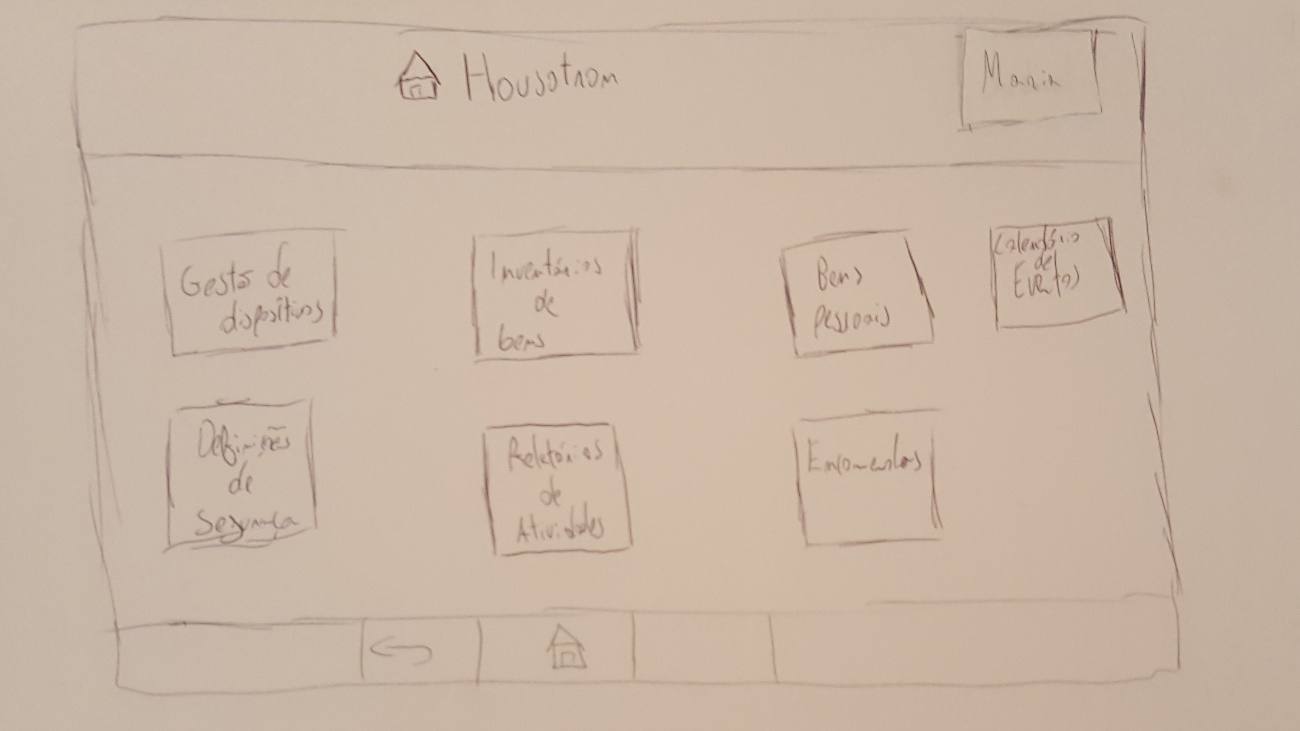 Housotrom
Maria
Gestão de
dispositivos
Inventários
de
bens
Bens
pessoais
Calendário
de
Eventos
Definições
de
Segurança
Relatórios
de
Atividades
Encomendas